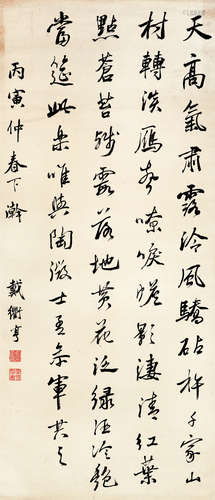 天高氣肅露冷風驕砧杵千家山
村轉淡雁聲嘹唳蹤影淒清紅葉
點蒼苔殘雲落地黃花泛綠酒冷艷
當筵此樂唯與陶徵士孟參軍共之
丙寅仲春下澣
戴衢亨